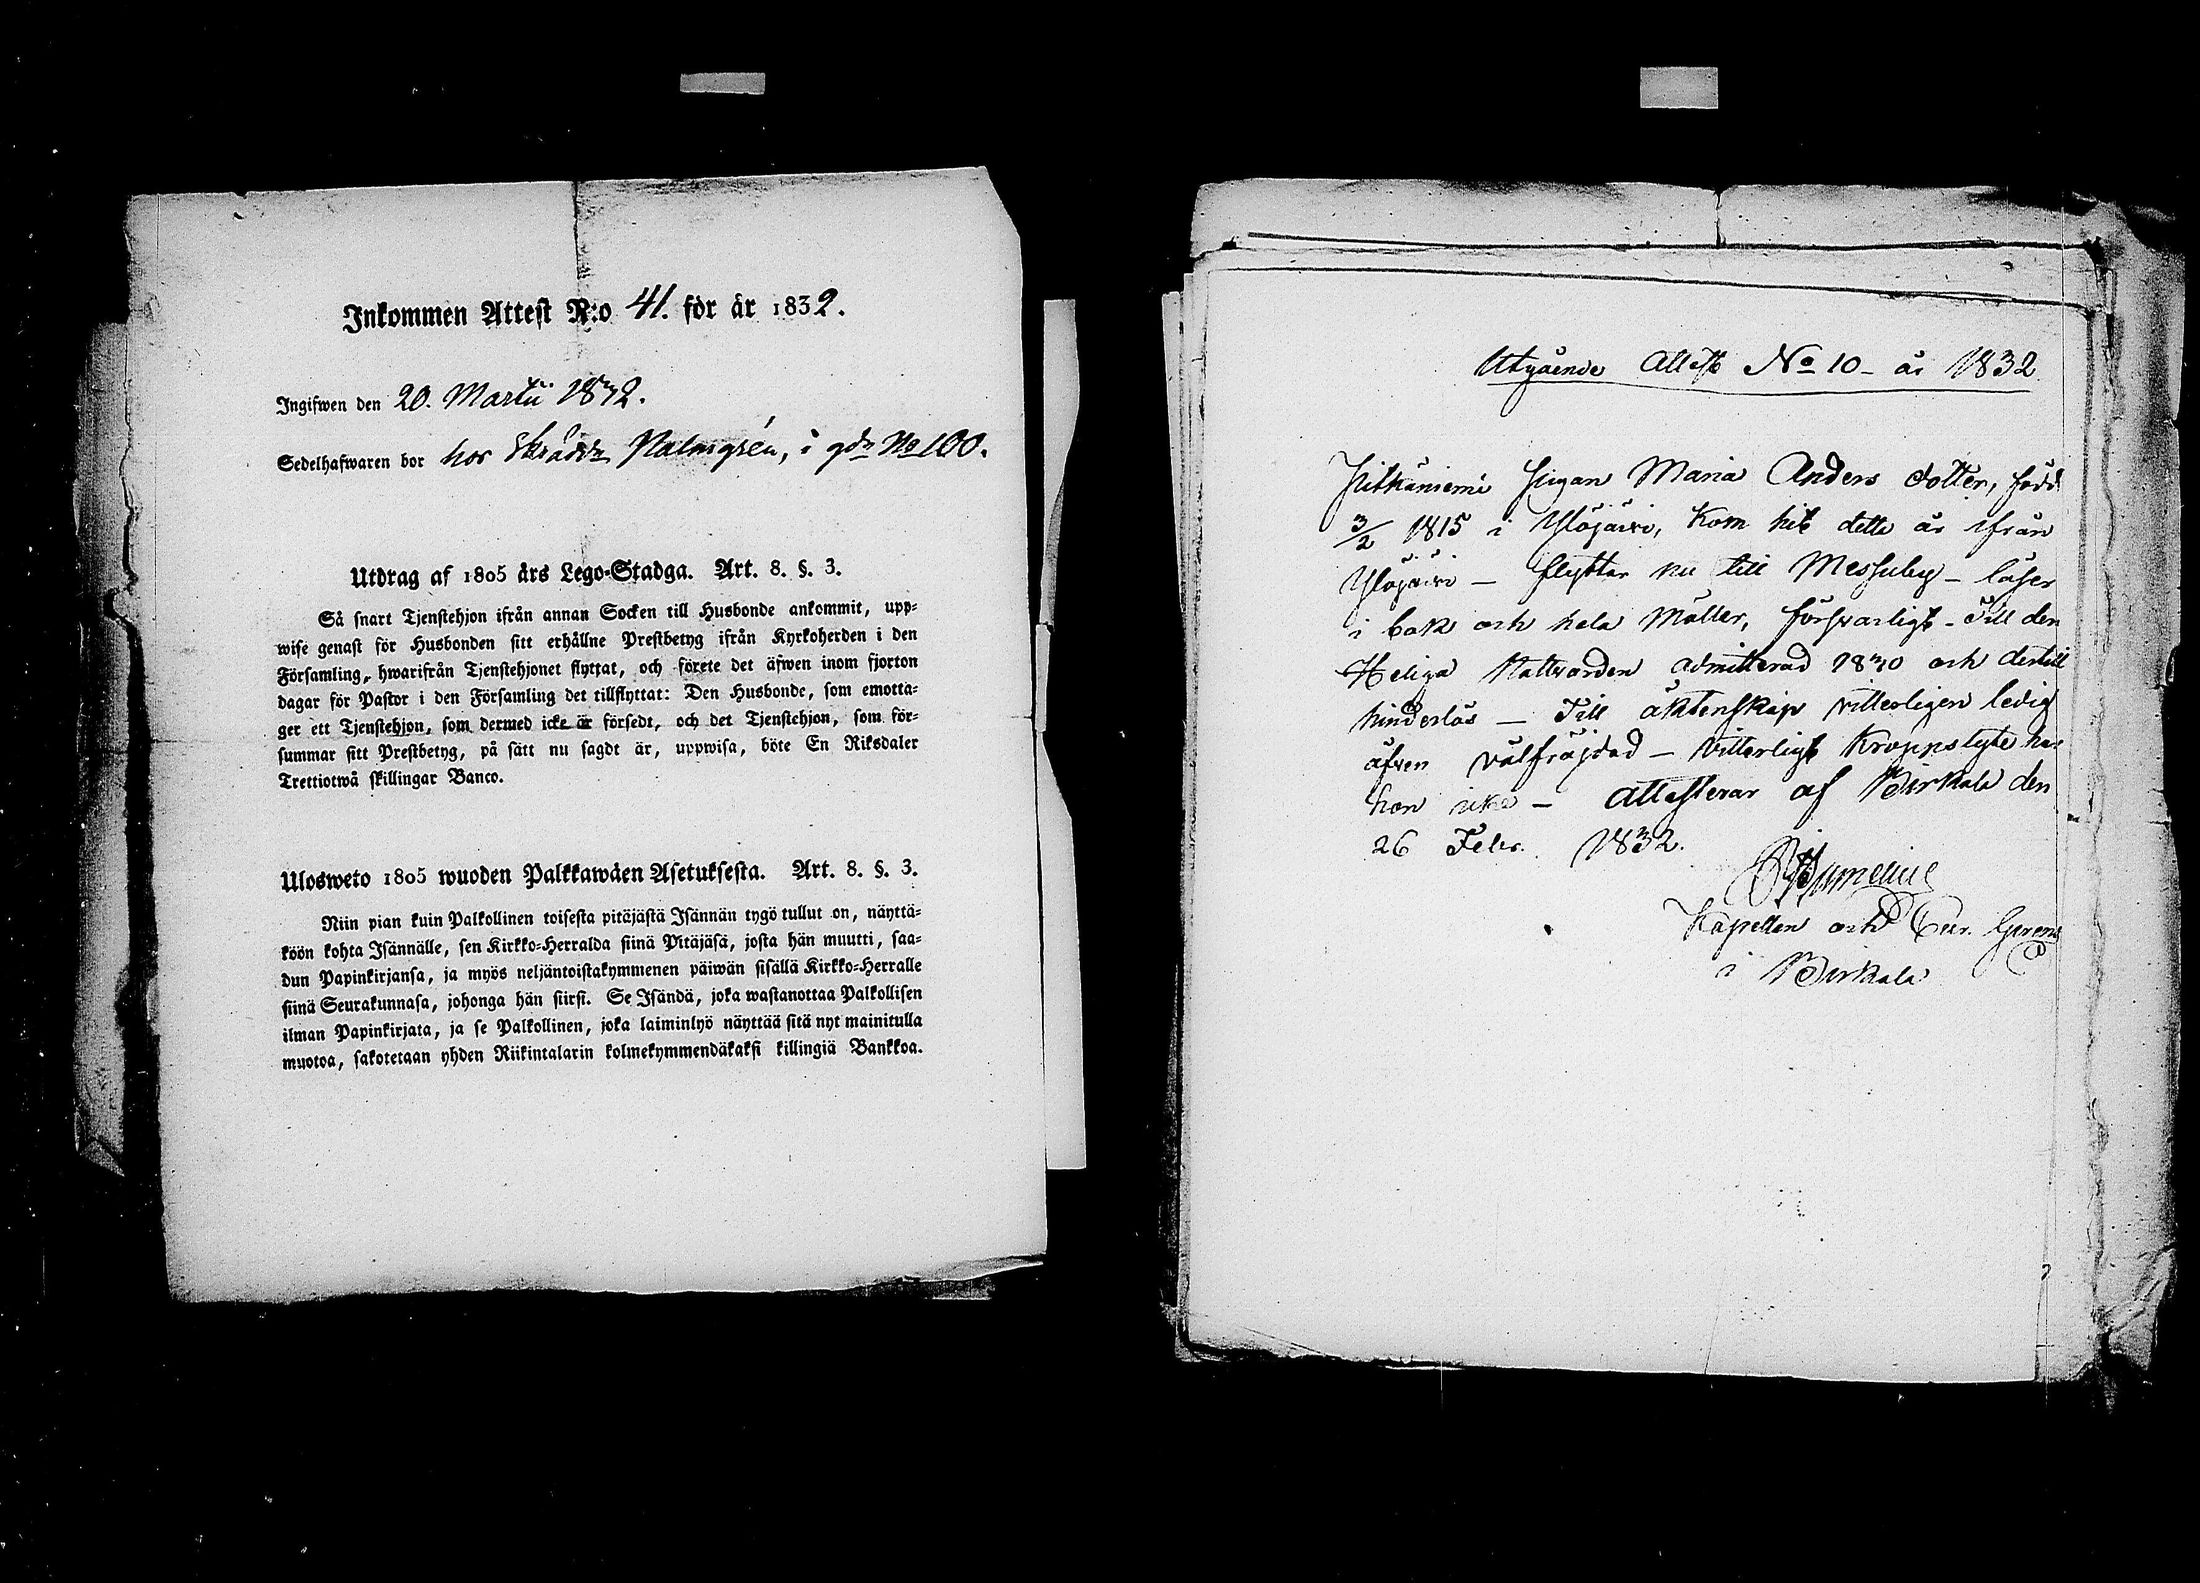 Inkommen Attest N:o 41. för år 1832.
Ingifwen den 20. Martii 1832.
Sedelhafwaren bor hos Skrädd: Palmgrén, i gdn No 100.
Utdrag af 1805 års Lego-Stadga. Art. 8. §. 3.
Så snart Tjenstehjon ifrån annan Socken till Husbonde ankommit, upp-
wise genast för Husbonden sitt erhållne Prestbetyg ifrån Kyrkoherden i den
Församling, hwarifrån Tjenstehjonet flyttat, och förete det äfwen inom fjorton
dagar för Pastor i den Församling det tillflyttat: Den Husbonde, som emotta-
ger ett Tjenstehjon, som dermed icke är försedt, och det Tjenstehjon, som för-
summar sitt Prestbetyg, på sätt nu sagdt är, uppwisa, böte En Riksdaler
Trettiotwå skillingar Banco.
Ulosweto 1805 wuoden Palkkawäen Asetuksesta. Art. 8. §. 3.
Niin pian kuin Palkollinen toisesta pitäjästä Isännän tygö tullut on, näyttä-
köön kohta Isännälle, sen Kirkko-Herralda siinä Pitäjäsä, josta hän muutti, saa-
dun Papinkirjansa, ja myös neljäntoistakymmenen päiwän sisällä Kirkko-Herralle
siinä Seurakunnasa, johonga hän siirsi. Se Isändä, joka wastanottaa Palkollisen
ilman Papinkirjata, ja se Palkollinen, joka laiminlyö näyttää sitä nyt mainitulla
muotoa, sakotetaan yhden Riikintalarin kolmekymmendäkaksi killingiä Bankkoa.
Utgående Attest No 10 - år 1832
Pitkäniemi Pigan Maria Anders dotter, född
3/2 1815 i Ylöjärvi, kom hit detta år ifrån
Ylöjärvi - flyttar nu till Messuby - läser
i bok och hela Möller, försvarligt - Till den
Heliga Nattvarden admitterad 1830 och dertill
hinderlös - Till äktenskap vitterligen ledig
äfven välfräjdad - Vitterligt kroppslyte har
hon icke - attesterar af Birkala den
26 Febr. 1832.
Kapellan och Cur. Gerens
i Birkala